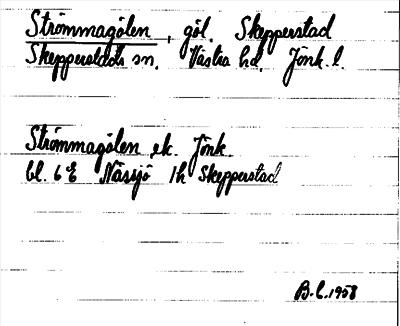 Strömmagölen, göl. Skepperstad
Skepperstads sn. Västra hd. Jönk. l.
Strömmagölen ek. Jönk.
bl. 6 E Nässjö 1h Skepperstad
B.L. 1958